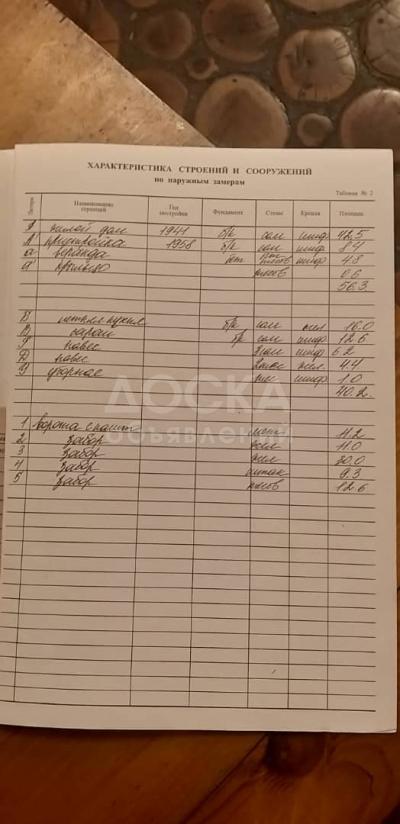 ХАРАКТЕРИСТИКА СТРОЕНИЙ И СООРУЖЕНИЙ
по наружным замерам
Таблица № 2
Литера Наименование строений Год постройки Фундамент Стены Крыша Площадь
А жилой дом 1941 б/к сам шиф 42.5
А пристройка 1958 б/к сам шиф 8.4
а веранда бет шиф 4.8
а крыльцо 0.6
56.3
Б летняя кухня б/к сам жел 16.0
В сарай б/к сам шиф 12.6
Г навес шиф 6.2
Д навес жел. 4.4
У уборная шиф 1.0
40.2
1 ворота с калит. 4.2
2 забор жел 4.0
3 забор жел 20.0
4 забор штак 9.3
5 забор 12.6
ДОСКА
ОБЪЯВЛЕНИЙ